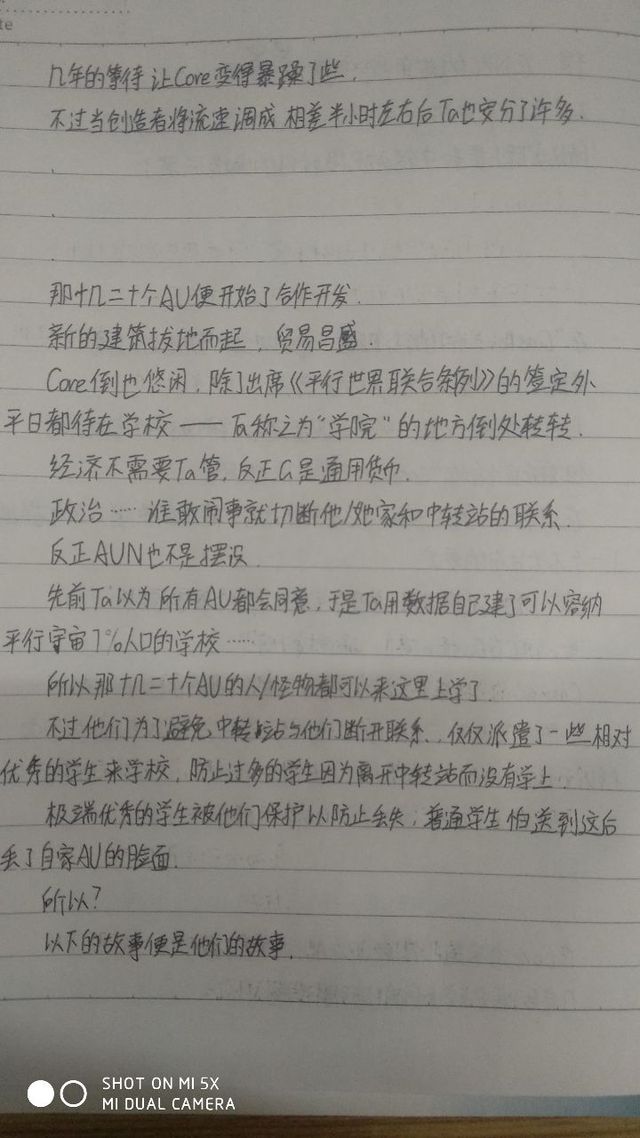 te
几年的等待 让Core变得暴躁了些.
不过当创造者将流速调成 相差半小时左右后 Ta也安分了许多.
那十几二十个AU便开始了合作开发.
新的建筑拔地而起，贸易昌盛.
Core倒也悠闲，除了出席《平行世界联合条例》的签定外
平日都待在学校——Ta称之为“学院”的地方倒处转转.
经济不需要Ta管，反正G是通用货币.
政治……谁敢闹事就切断他/她家和中转站的联系.
反正AUN也不是摆设.
先前Ta以为所有AU都会同意，于是Ta用数据自己建了可以容纳
平行宇宙1%人口的学校……
所以那十几二十个AU的人/怪物都可以来这里上学了.
不过他们为了避免中转站与他们断开联系，仅仅派遣了一些相对
优秀的学生来学校，防止过多的学生因为离开中转站而没有学上.
极端优秀的学生被他们保护以防止丢失；普通学生怕送到这后
丢了自家AU的脸面.
所以？
以下的故事便是他们的故事.
SHOT ON MI 5X
MI DUAL CAMERA